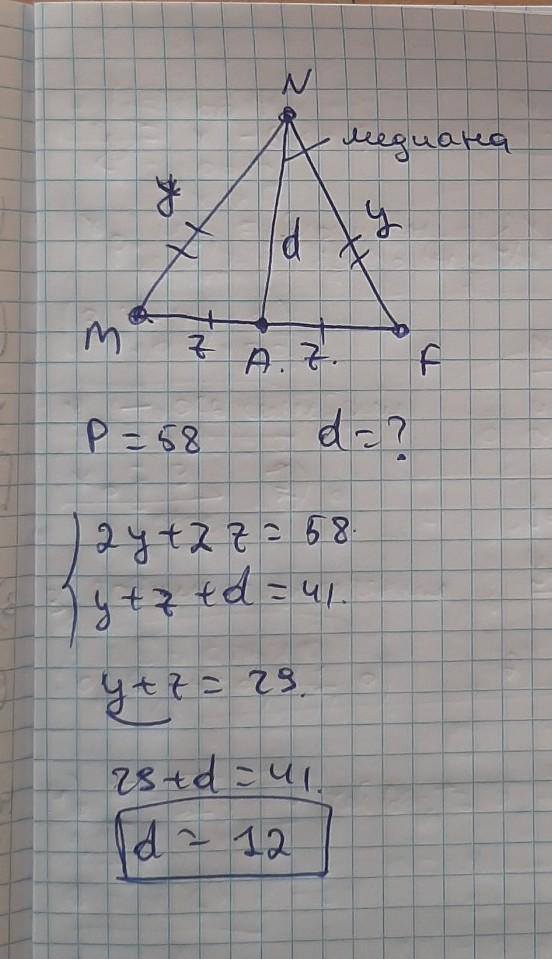 N
медиана
y
y
d
M
z
A.
z.
F
P = 58 d = ?
2y + 2z = 58.
y + z + d = 41.
y + z = 29.
29 + d = 41.
d = 12